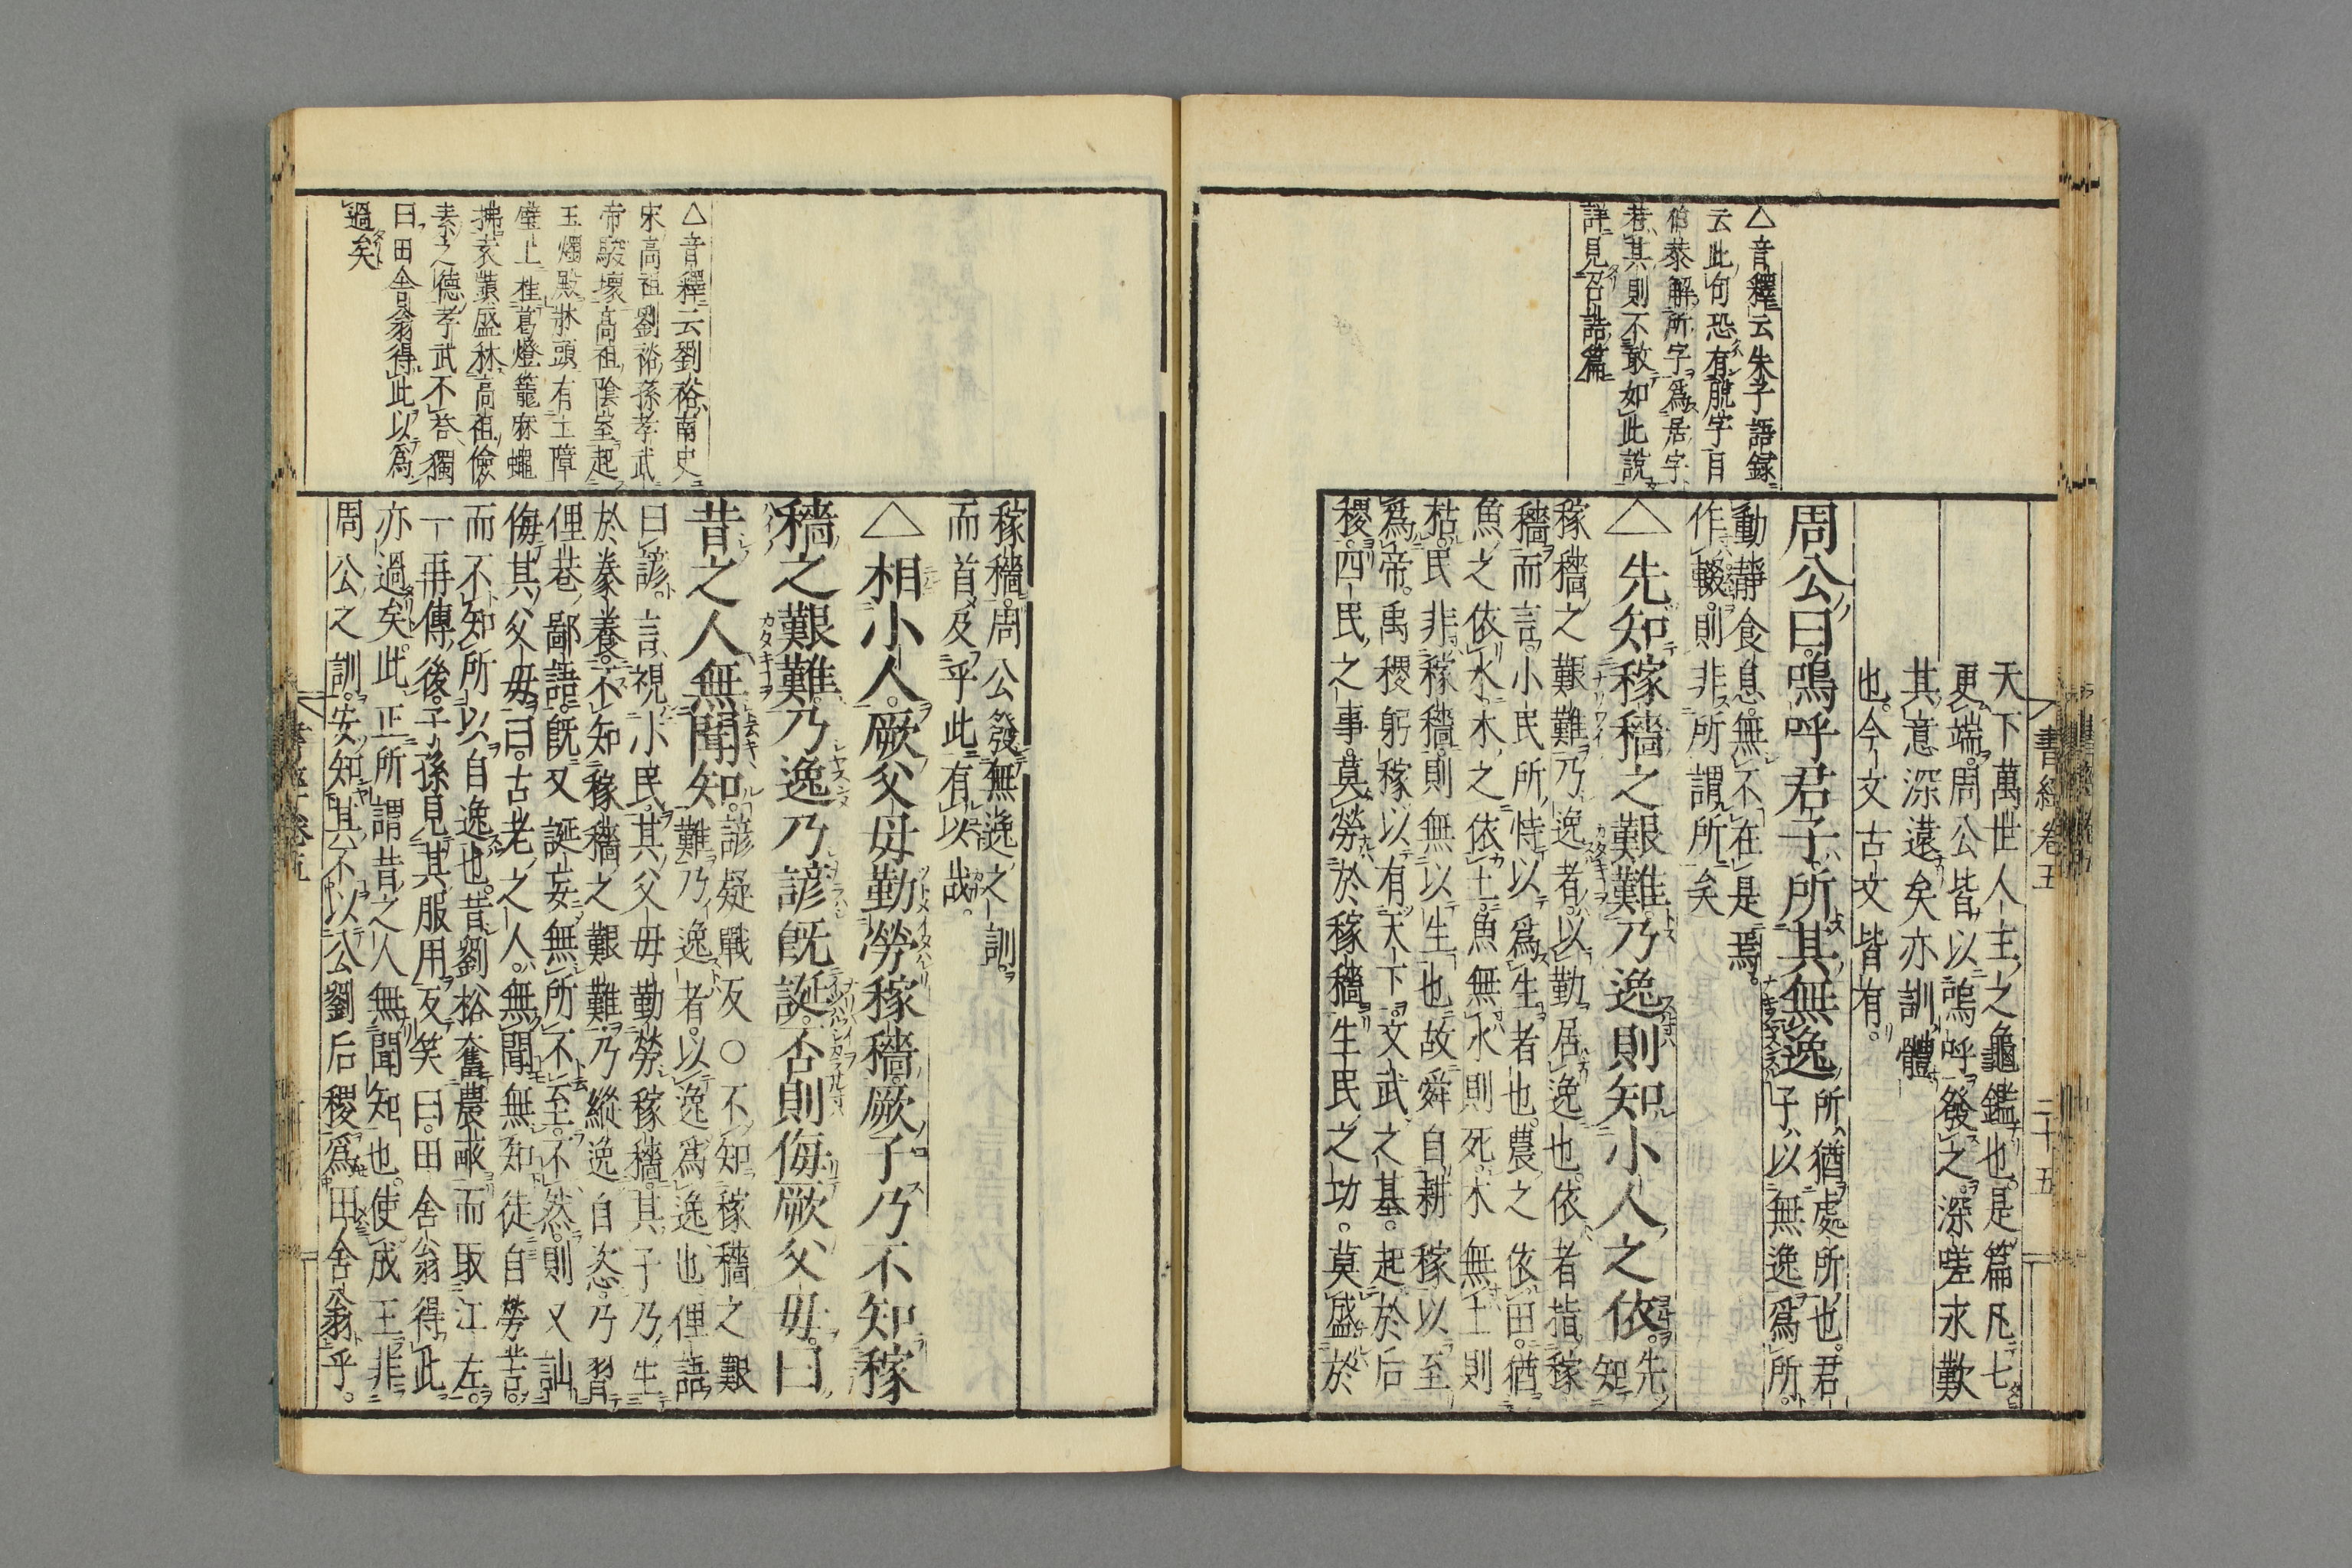 天下萬世人主之龜鑑也是篇凡七
更端周公皆以嗚呼發之深嗟永歎
其意深遠矣亦訓體
也今文古文皆有
周公曰嗚呼君子所其無逸
所猶處所也君
子以無逸爲所
動靜食息無不在是焉
作輟則非所謂所矣
△先知稼穡之艱難乃逸則知小人之依
先知
稼穡之艱難乃逸者以勤居逸也依者指稼
穡而言小民所恃以爲生者也農之依田猶
魚之依水木之依土魚無水則死木無土則
枯民非稼穡則無以生也故舜自耕稼以至
爲帝禹稷躬稼以有天下文武之基起於后
稷四民之事莫勞於稼穡生民之功莫盛於
△音釋云朱子語録
云此句恐有脫字
伯恭解所字爲居字
其則不敢如此說
詳見召誥篇
書經卷五
二十五
稼穡周公發無逸之訓
而首及乎此有以哉
△相小人厥父母勤勞稼穡厥子乃不知稼
穡之艱難乃逸乃諺既誕否則侮厥父母曰
昔之人無聞知
諺疑戰反○不知稼穡之艱
難乃逸者以逸爲逸也俚語
曰諺言視小民其父母勤勞稼穡其子乃生
於豢養不知稼穡之艱難乃縱逸自恣乃習
俚巷鄙語既又誕妄無所不至不然則又訕
侮其父母曰古老之人無聞無知徒自勞苦
而不知所以自逸也昔劉裕奮農畝而取江左
一再傳後子孫見其服用反笑曰田舍翁得此
亦過矣此正所謂昔之人無聞知也使成王非
周公之訓安知其不以公劉后稷爲田舍翁乎
△音釋云劉裕南史
宋高祖劉裕孫孝武
帝駿壞高祖陰室起
玉燭殿牀頭有土障
壁上挂葛燈籠麻蠅
拂袁顗盛稱高祖儉
素之德孝武不答獨
曰田舍翁得此以爲
過矣